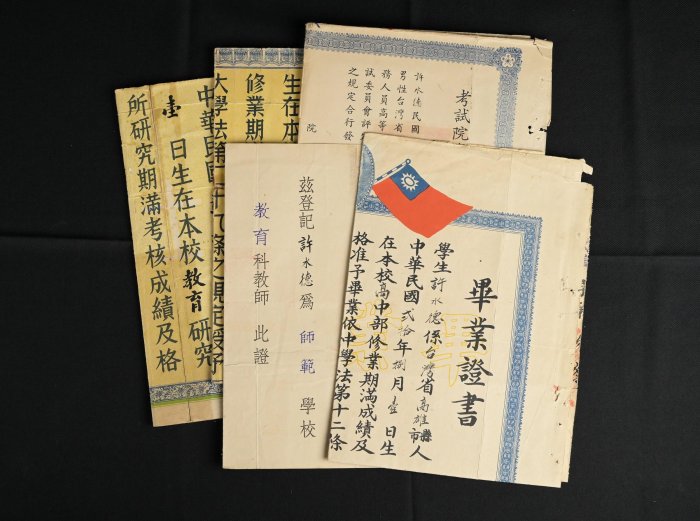 畢業證書
學生許水德係台灣省高雄市縣人
中華民國貳拾年捌月壹日生
在本校高中部修業期滿成績及
格准予畢業依中學法第十二條
茲登記許水德為師範學校
教育科教師此證
考試院
許水德民國
男性台灣省
務人員高等
試委員會評
之規定合行發
院
生在本
修業期
大學法第
中華民國
壹日生在本校教育研究
所研究期滿考核成績及格